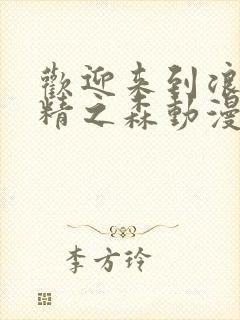 歡迎来到浪
精之森動漫
李方玲